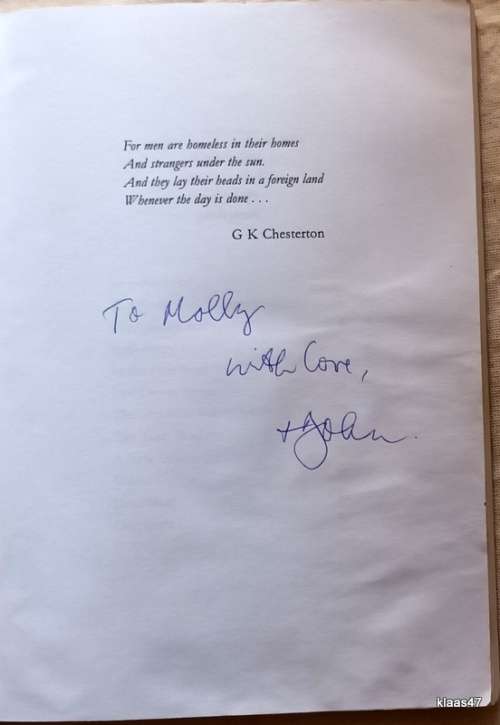 For men are homeless in their homes
And strangers under the sun.
And they lay their heads in a foreign land
Whenever the day is done . . .
G K Chesterton
To Molly
with love,
+John.
klaas47